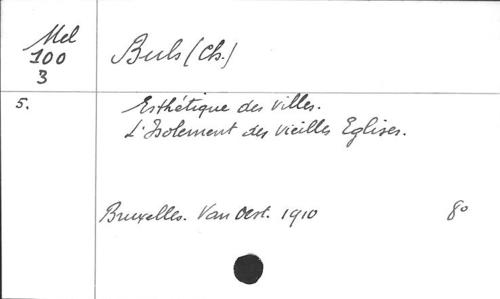 Mel
100
3
Buls (Ch.)
5.
Esthétique des Villes.
L'Isolement des vieilles Eglises.
Bruxelles. Van Oest. 1910
8º